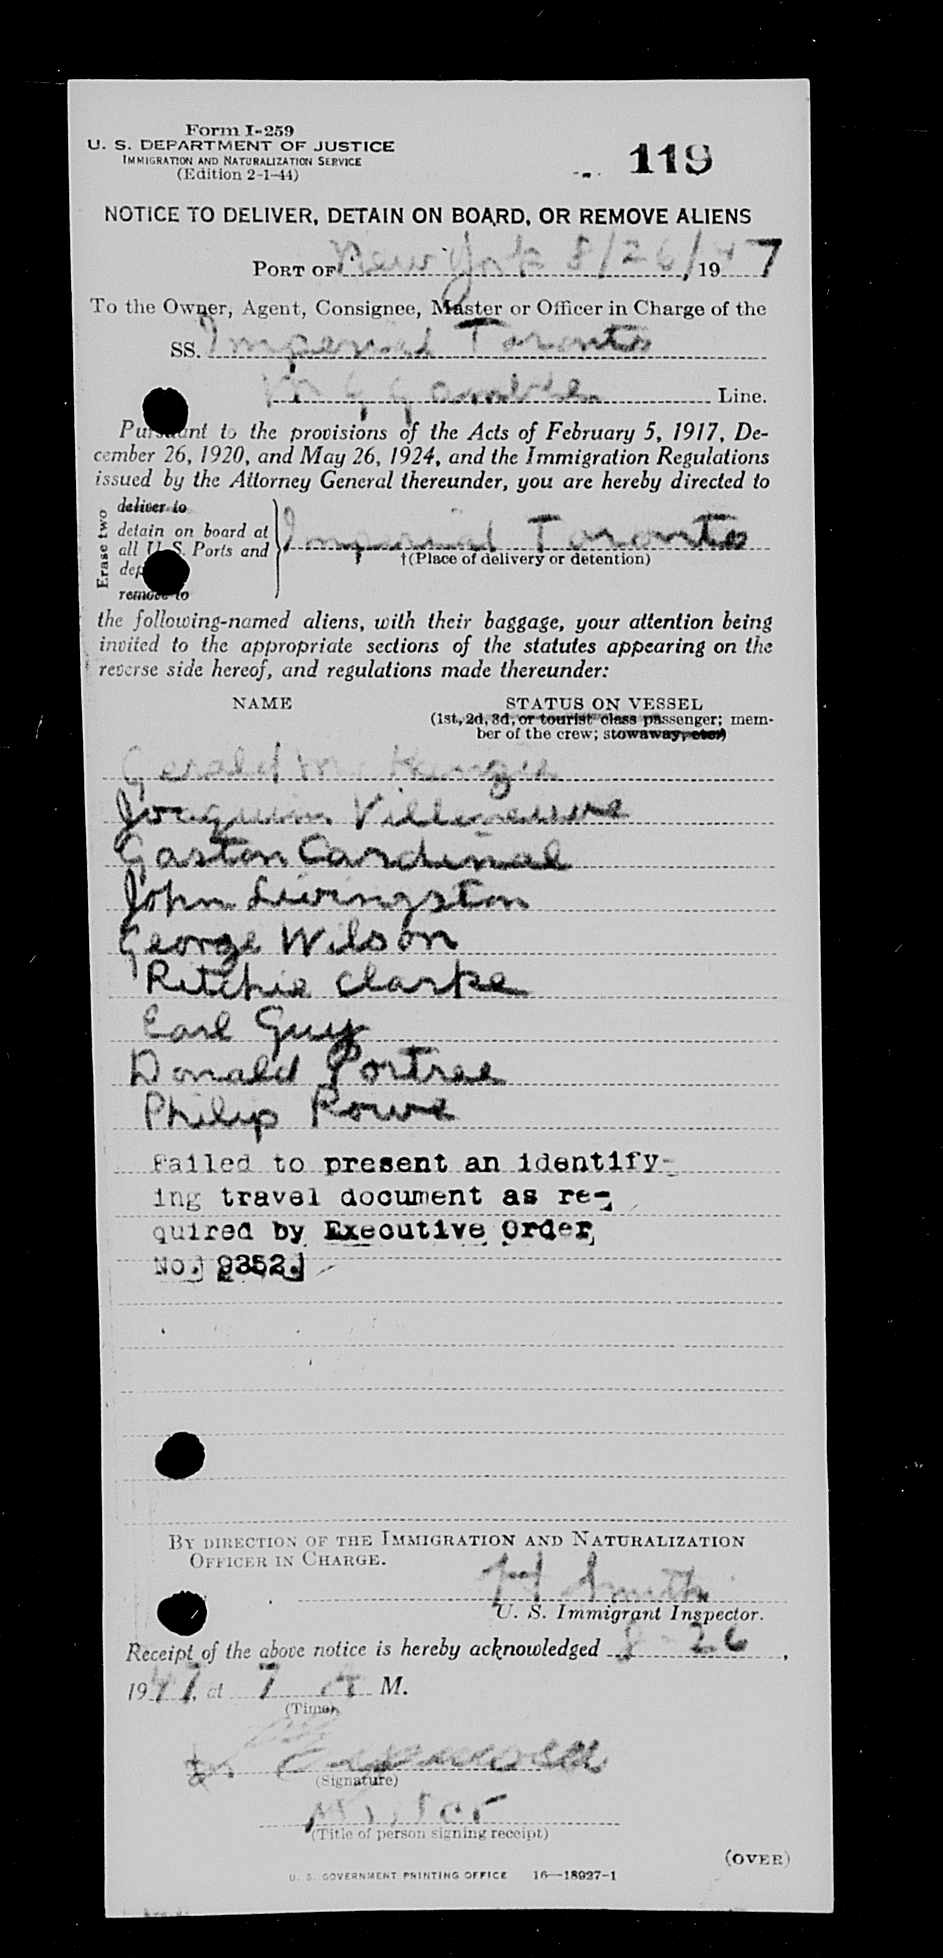 Form I-259
U. S. DEPARTMENT OF JUSTICE
IMMIGRATION AND NATURALIZATION SERVICE
(Edition 2-1-44)
119
NOTICE TO DELIVER, DETAIN ON BOARD, OR REMOVE ALIENS
PORT OF New York 8/26/1947
To the Owner, Agent, Consignee, Master or Officer in Charge of the
SS. Imperial Toronto
Line.
Pursuant to the provisions of the Acts of February 5, 1917, De-
cember 26, 1920, and May 26, 1924, and the Immigration Regulations
issued by the Attorney General thereunder, you are hereby directed to
Erase two
deliver to
detain on board at
all U. S. Ports and
remove to
Imperial Toronto
†(Place of delivery or detention)
the following-named aliens, with their baggage, your attention being
invited to the appropriate sections of the statutes appearing on the
reverse side hereof, and regulations made thereunder:
NAME STATUS ON VESSEL
(1st, 2d, 3d, or tourist class passenger; mem-
ber of the crew; stowaway, etc.)
Gerald McKenzie
Joaquim Villeneuve
Gaston Cardinal
John Livingston
George Wilson
Ritchie Clarke
Earl Guy
Donald Portree
Philip Rowe
Failed to present an identify-
ing travel document as re-
quired by Executive Order
No. 9352.
BY DIRECTION OF THE IMMIGRATION AND NATURALIZATION
OFFICER IN CHARGE.
H Smith
U. S. Immigrant Inspector.
Receipt of the above notice is hereby acknowledged 8-26,
1947, at 7 A M.
(Time)
(Signature)
Master
(Title of person signing receipt)
(OVER)
U. S. GOVERNMENT PRINTING OFFICE 16—18927-1